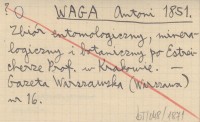 ? O WAGA Antoni 1851.
Zbiór entomologiczny, minera-
logiczny i botaniczny po Estrei-
cherze Prof. w Krakowie. —
Gazeta Warszawska (Warszawa)
nr 16.